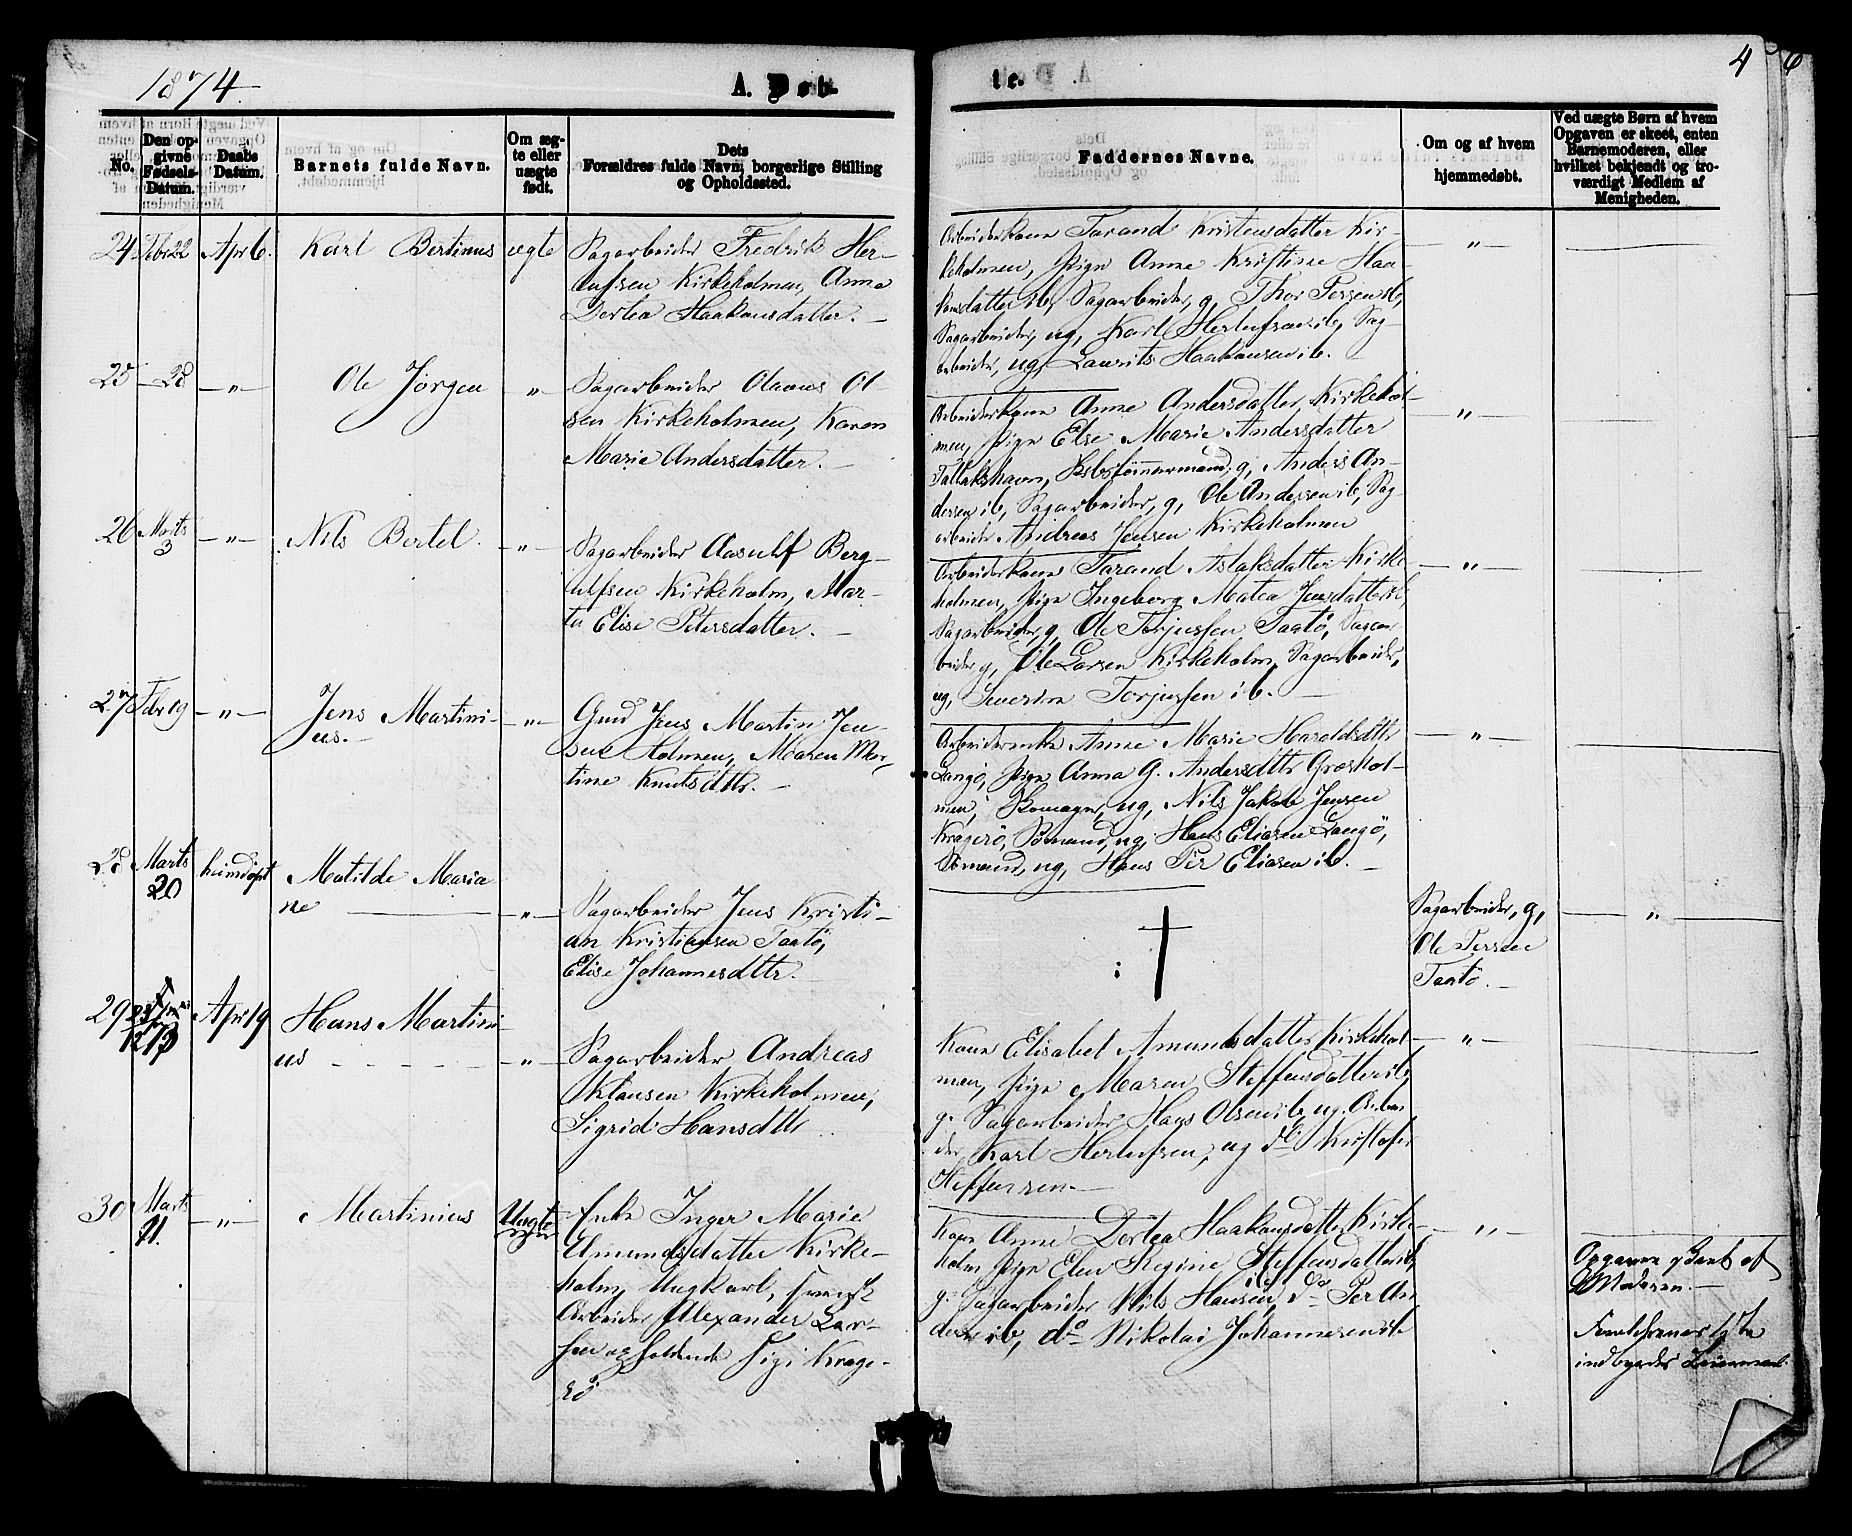 1874.
A. Døb
te.
4
6
No.
Den op-
givne
Fødsels-
Datum.
Daabs
Datum.
Barnets fulde Navn.
Om æg-
te eller
uægte
født.
Dets
Forældres fulde Navn, borgerlige Stilling
og Opholdssted.
Faddernes Navne.
Om og af hvem
hjemmedøbt.
Ved uægte Børn af hvem
Opgaven er skeet, enten
Barnemoderen, eller
hvilket bekjendt og tro-
værdigt Medlem af
Menigheden.
24 Febr 22 Apr 6. Karl Bertinus ægte
Sagarbeider Fredrik Her-
lufsen Kirkeholmen, Anna
Dortea Haakonsdatter. —
Arbeiderkone Tarand Kristensdatter Kir-
keholmen, Pige Anne Kristine Haa-
konsdatter ib, Sagarbeider, g, Thor Persen ib,
Sagarbeider, ug, Karl Herlufsen ib, Sag-
arbeider, ug, Laurits Haakonsen ib. —
— " —
25 — 28 — " — Ole Jørgen "
Sagarbeider Olaves Ol-
sen Kirkeholmen, Karen
Marie Andersdatter. —
Arbeiderkone Anne Andersdatter Kirkehol-
men, Pige Else Marie Andersdatter
Tallakshavn, Skibstømmermand, g, Anders An-
dersen ib, Sagarbeider, g, Ole Andersen ib, Sag-
arbeider Andreas Jensen Kirkeholmen
" —
26 Marts 3 — " — Nils Bertel. — " —
Sagarbeider Aasulf Berg-
ulfsen Kirkeholm, Mar-
ta Elise Petersdatter. —
Arbeiderkone Tarand Aslaksdatter Kirke-
holmen, Pige Ingeborg Matea Jensdatter ib,
Sagarbeider, g, Ole Torjussen Taatø, Sagar-
beider g, Ole Larsen Kirkeholm, Sagarbeider,
ug, Severin Torjussen ib. —
— " —
27 Febr 19 — " — Jens Martini-
us. —
— " —
Gmd Jens Martin Jen-
sen Holmen, Maren Mar-
tine Knutsdttr. —
Arbeiderenke Anne Marie Haroldsdttr
Langø, Pige Anna G. Andersdttr Græshol-
men, Skomager, ug, Nils Jakob Jensen
Kragerø, Sømand, ug, Hans Eliasen Langø,
Sømand, ug, Hans Per Eliasen ib. —
— " —
28 Marts 20 Matilde Maria
ne — " —
Sagarbeider Jens Kristi-
an Kristiansen Taatø,
Elise Johannesdttr.
Sagarbeider, g,
Ole Persen
Taatø. —
— " —
29 Apr 19 Hans Martini-
us — " —
Sagarbeider Andreas
Klausen Kirkeholmen,
Sigrid Hansdttr
Kone Elisabet Amundsdatter Kirkehol-
men, Pige Maren Steffensdatter ib,
g. Sagarbeider Hans Olsen ib, ug. Arbei-
der Karl Herlufsen, ug do Kristofer
Steffensen —
— " —
30 Marts 11. — " — Martinius Uægte
Enke Inger Marie
Amundsdatter Kirke-
holm, Ungkarl,
Arbeider Alexander Lar-
sen opholdende Krage-
rø
Kone Anne Dortea Haakonsdatter Kirke-
holm Pige Elen Regine Steffensdatter ib,
g. Sagarbeider Nils Hansen ib, do Per An-
dersen ib, do Nikolai Johannesen ib
— " —
Opgaven gjort af
Moderen. —